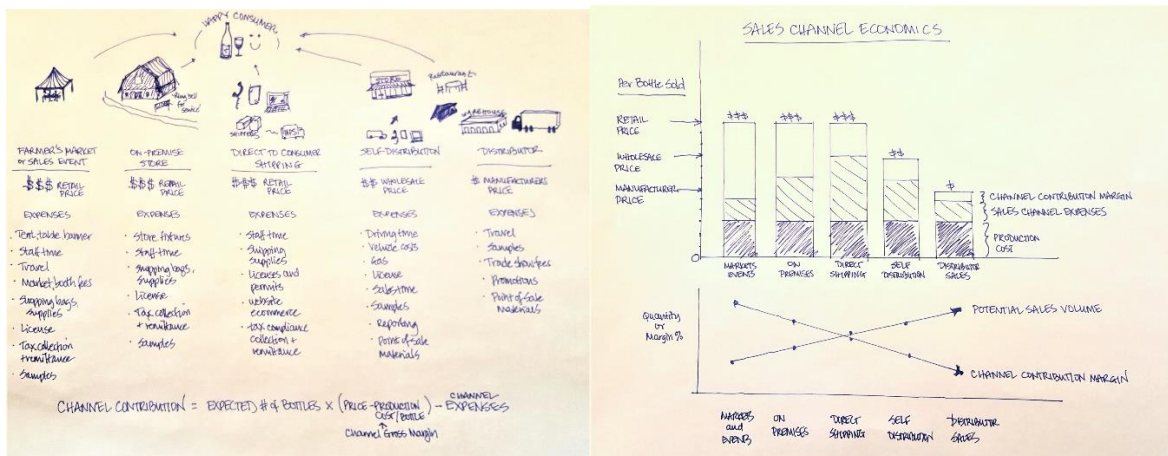 HAPPY CONSUMER
Ring bell
for
Service
STORE
Restaurant
WAREHOUSE
SHIPPERS
UPS
FARMER'S MARKET
or SALES EVENT
-$$$ RETAIL
PRICE
EXPENSES
· Tent, table, banner
· Staff time
· Travel
· Market/booth fees
· Shopping bags,
supplies
· License
· Tax collection
+ remittance
· Samples
ON-PREMISE
STORE
$$$ RETAIL
PRICE
EXPENSES
· Store fixtures
· Staff time
· Shipping bags,
supplies
· License
· Tax collection
+ remittance
· Samples
DIRECT TO CONSUMER
SHIPPING
$$$ RETAIL
PRICE
EXPENSES
· Staff time
· Shipping
supplies
· Licenses and
permits
· website
ecommerce
· tax compliance
collection +
remittance
SELF-DISTRIBUTION
$$ WHOLESALE
PRICE
EXPENSES
· Driving time
· Vehicle costs
· Gas
· License
· Sales time
· Samples
· Reporting
· Point of Sale
Materials
DISTRIBUTOR
$ MANUFACTURERS
PRICE
EXPENSES
· Travel
· Samples
· Trade show fees
· Promotions
· Point of Sale
Materials
CHANNEL CONTRIBUTION = EXPECTED # of BOTTLES × (PRICE - PRODUCTION COST/BOTTLE) - CHANNEL EXPENSES
Channel Gross Margin
SALES CHANNEL ECONOMICS
Per Bottle Sold
RETAIL
PRICE
WHOLESALE
PRICE
MANUFACTURER
PRICE
O
$$$
$$$
$$$
$$
$
CHANNEL CONTRIBUTION MARGIN
SALES CHANNEL EXPENSES
PRODUCTION
COST
MARKETS
EVENTS
ON
PREMISES
DIRECT
SHIPPING
SELF
DISTRIBUTION
DISTRIBUTOR
SALES
Quantity
or
Margin %
POTENTIAL SALES VOLUME
CHANNEL CONTRIBUTION MARGIN
MARKETS
and
EVENTS
ON
PREMISES
DIRECT
SHIPPING
SELF
DISTRIBUTION
DISTRIBUTOR
SALES